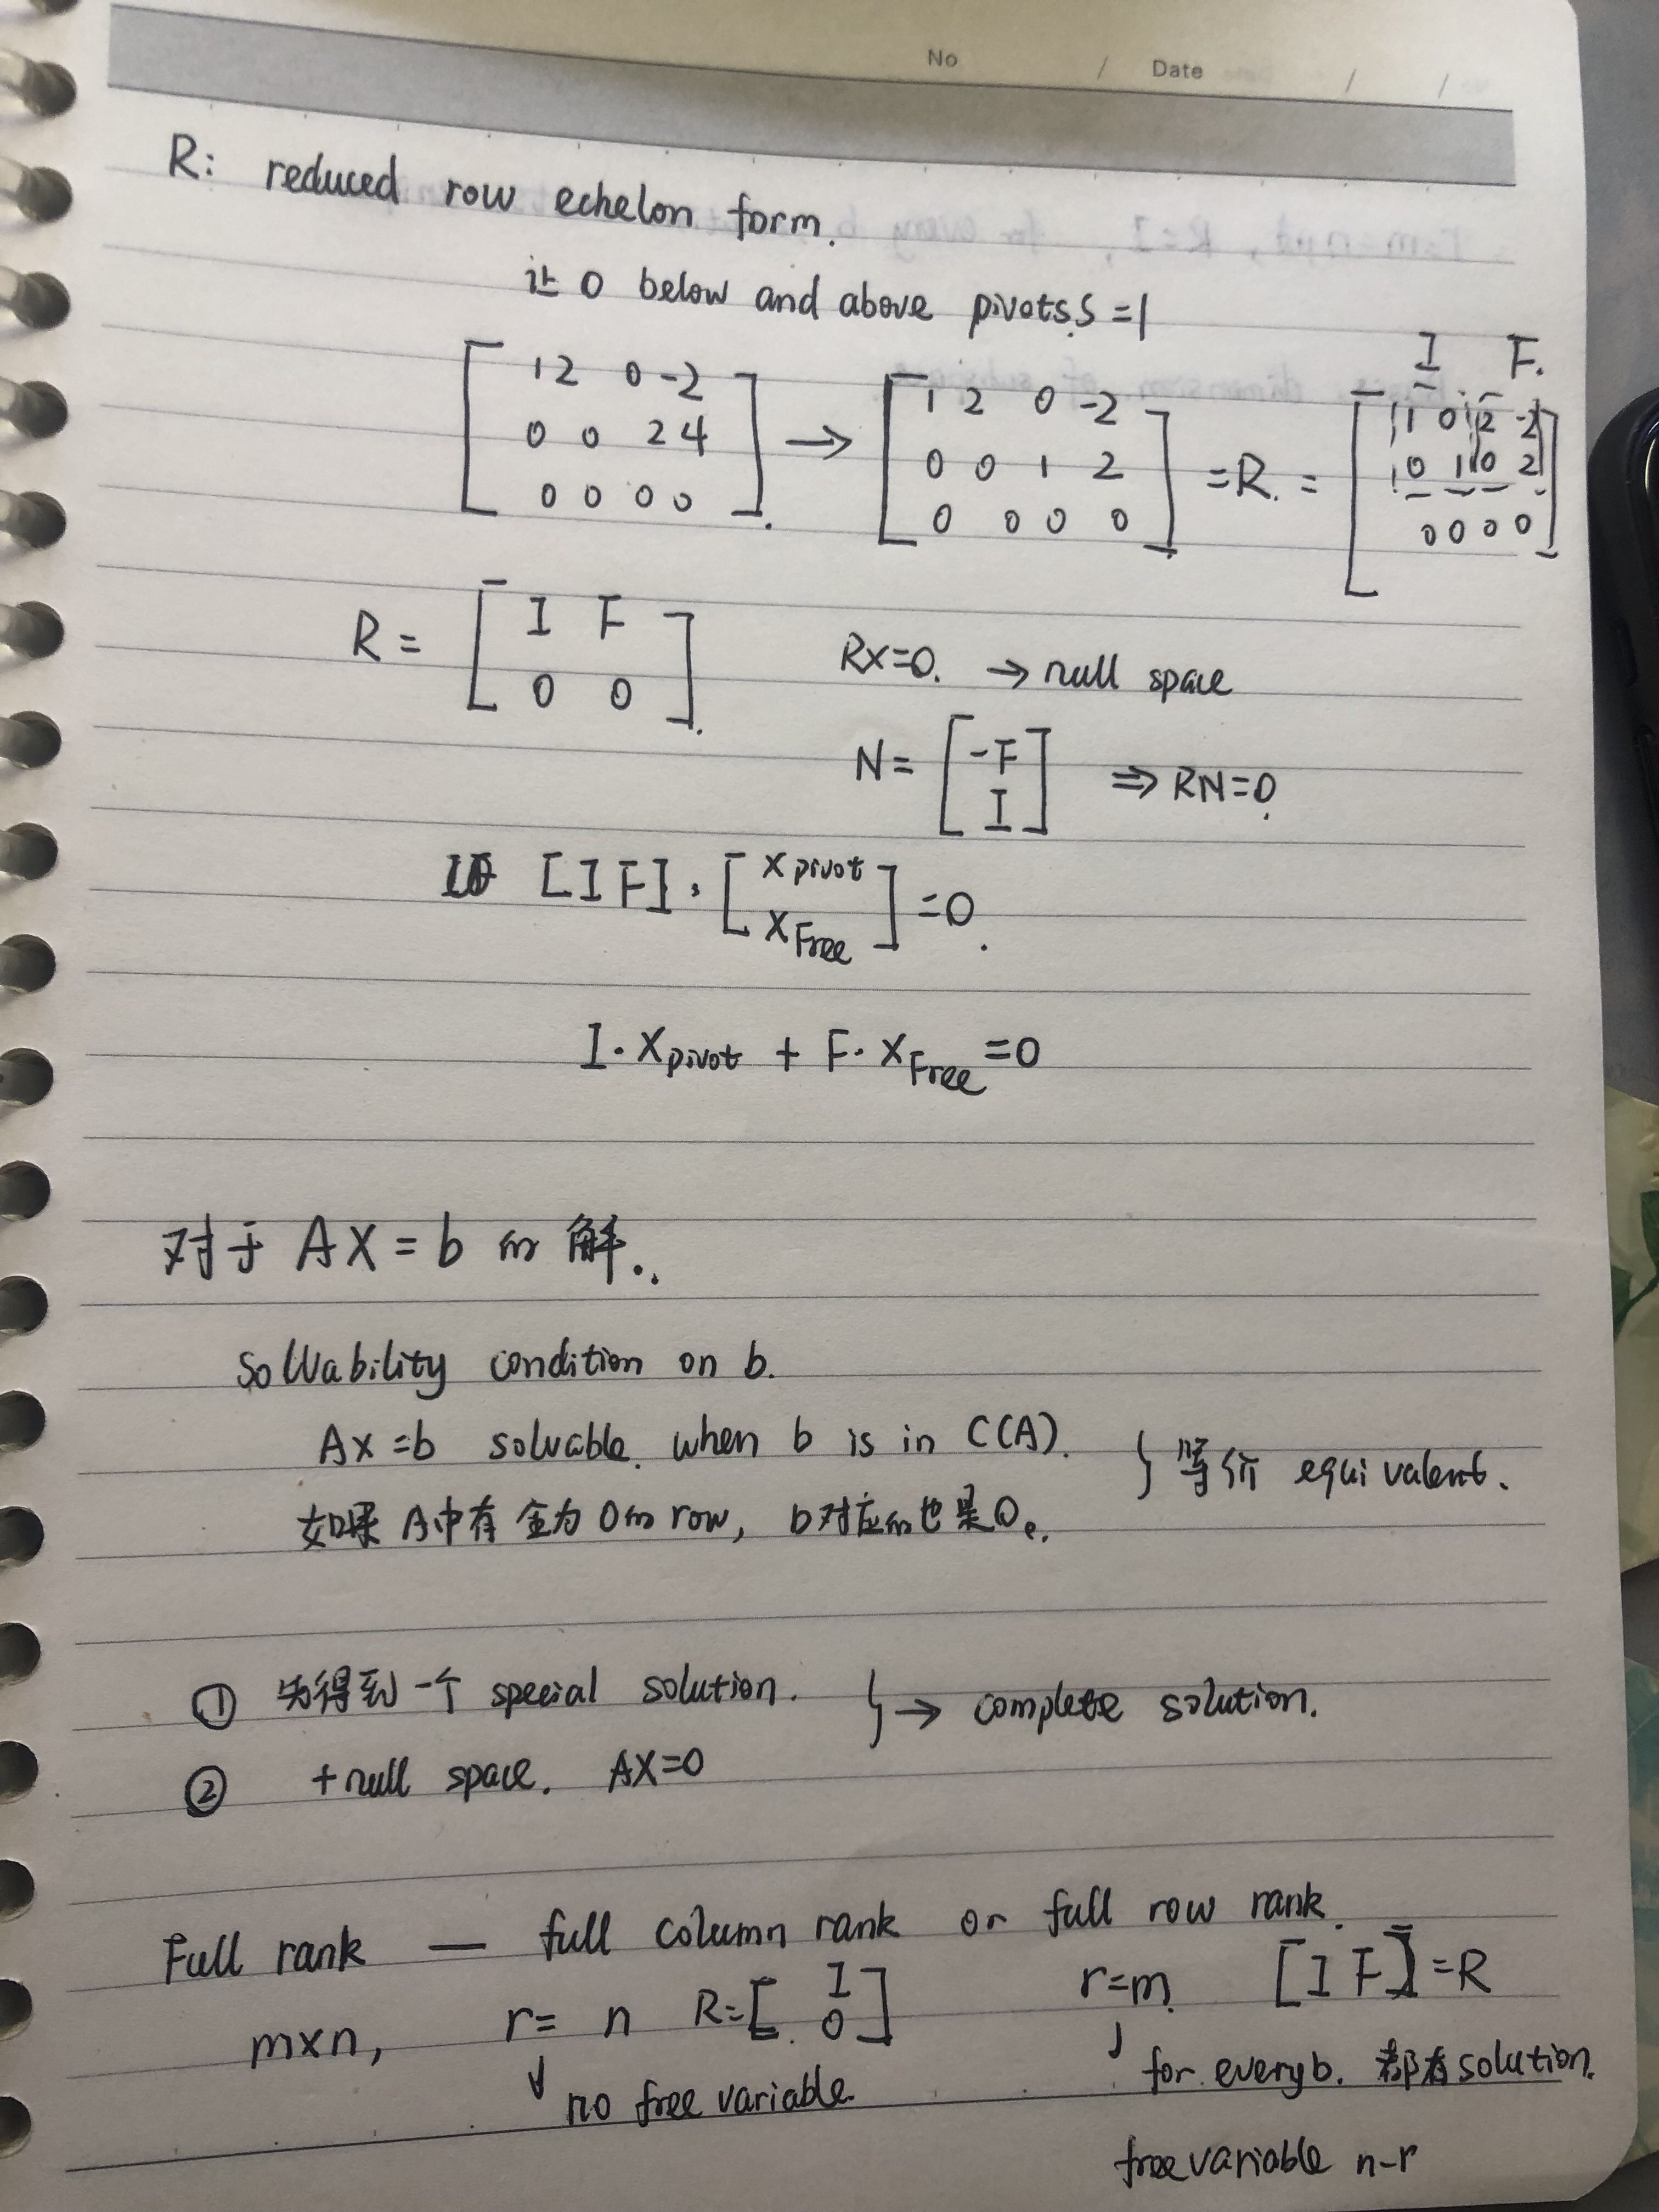 No / Date / /
R: reduced row echelon form.
让 0 below and above pivots.S =1
[ 1 2 0 -2 ; 0 0 2 4 ; 0 0 0 0 ] → [ 1 2 0 -2 ; 0 0 1 2 ; 0 0 0 0 ] = R. = [ 1 0 2 -2 ; 0 1 0 2 ; 0 0 0 0 ] I F.
R = [ I F ; 0 0 ] RX=0. → null space
N = [ -F ; I ] ⇒ RN=0.
[I F] · [ X pivot ; X Free ] =0.
I · X pivot + F · X Free =0
对于 AX = b 的 解.
Sollvability condition on b.
AX =b solvable. when b is in C(A). } 等价 equivalent.
如果 A中有 全为 0的 row, b对应的也是0。
① 为得到一个 special solution. } → complete solution.
② + null space. AX=0
Full rank — full column rank or full row rank.
m×n, r = n R=[ I ; 0 ] r=m. [I F]=R
↓ no free variable. ↓ for every b. 都有 solution.
free variable n-r